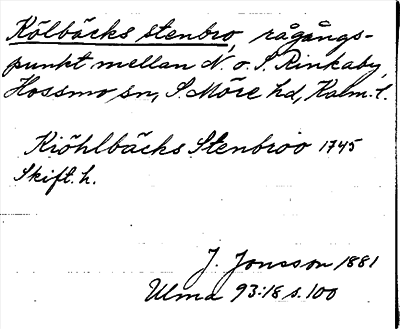 Kölbäcks stenbro, rågångs-
punkt mellan N. o. S. Rinkaby,
Hossmo sn, S. Möre hd, Kalm. l.
Kiöhlbäcks Stenbroo 1745
Skift. h.
J. Jonsson 1881
Ulma 93:18 s. 100